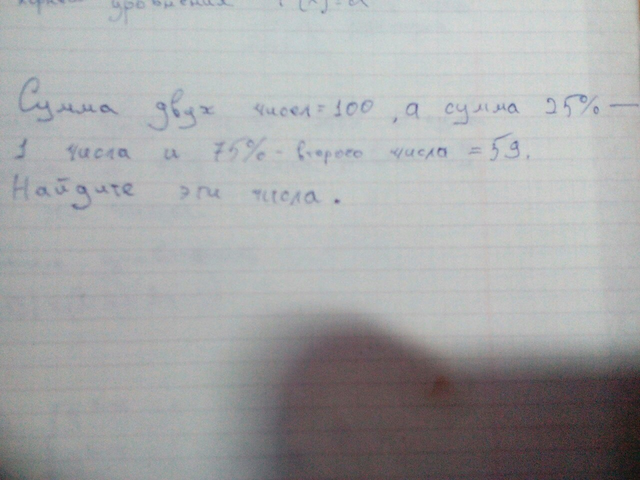 уровнения
Сумма двух чисел = 100, а сумма 25% —
1 числа и 75% - второго числа = 59.
Найдите эти числа.